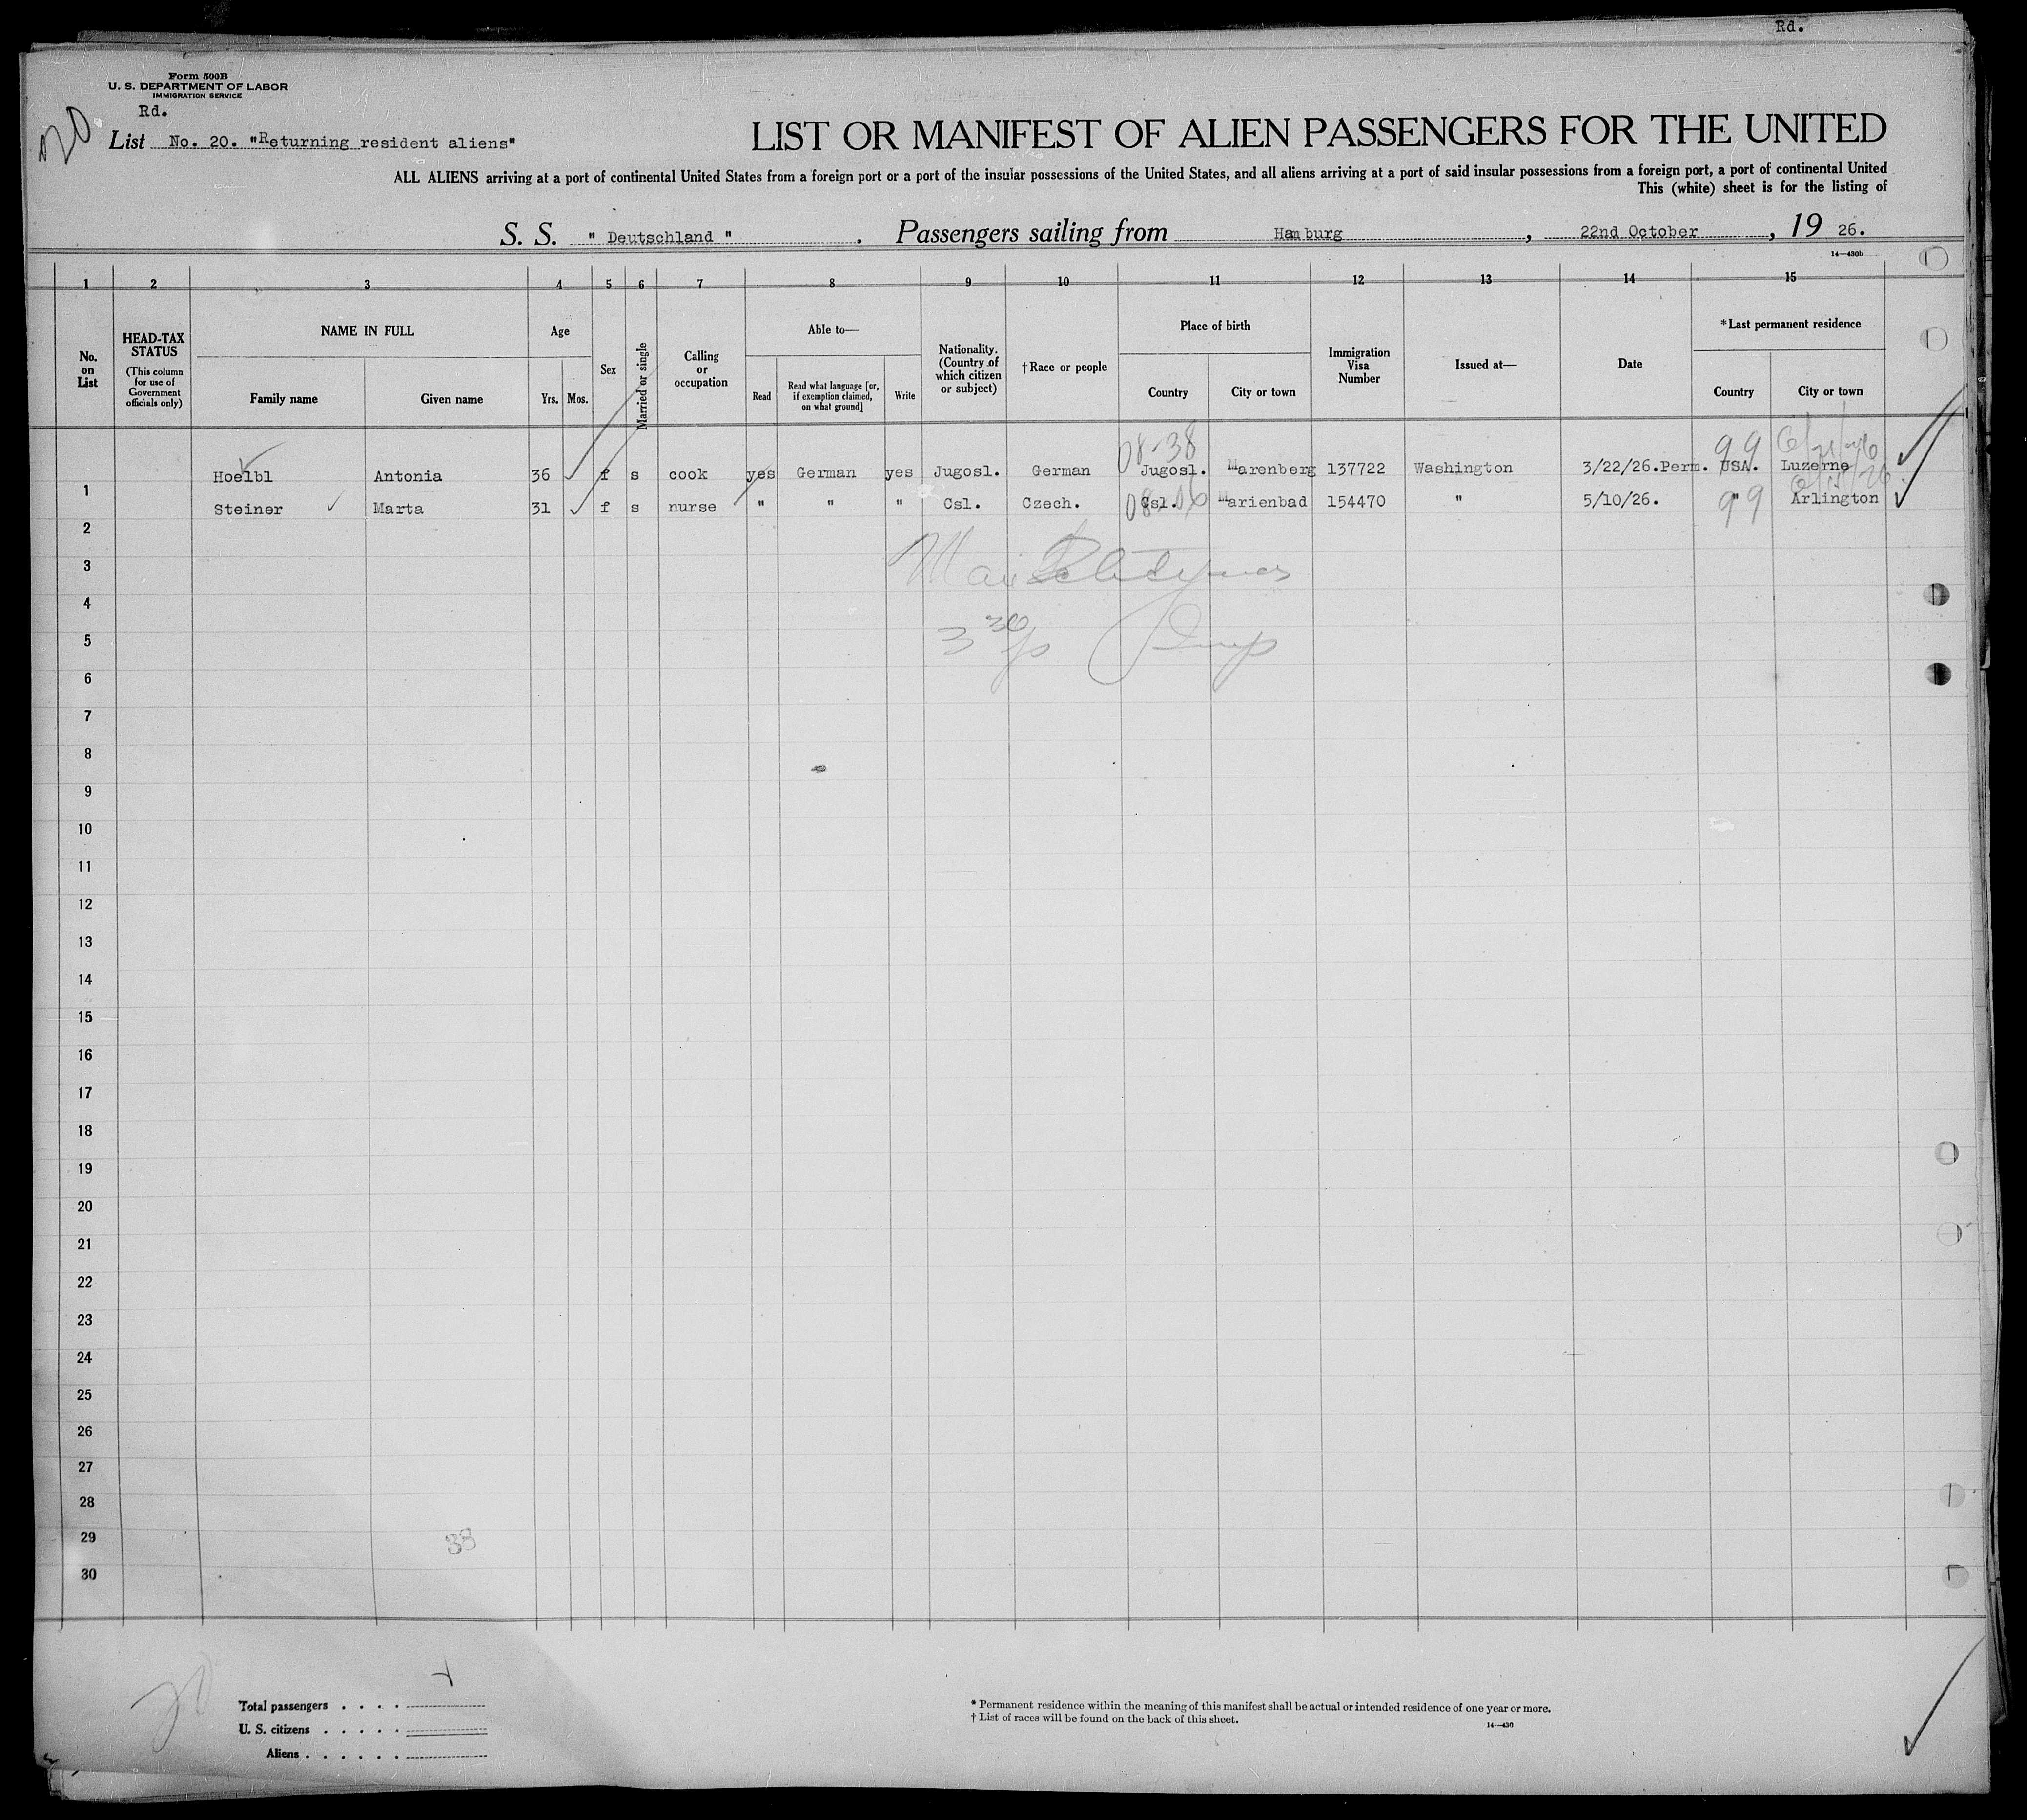 Rd.
Form 500B
U. S. DEPARTMENT OF LABOR
IMMIGRATION SERVICE
Rd.
20
List No. 20. "Returning resident aliens"
LIST OR MANIFEST OF ALIEN PASSENGERS FOR THE UNITED
ALL ALIENS arriving at a port of continental United States from a foreign port or a port of the insular possessions of the United States, and all aliens arriving at a port of said insular possessions from a foreign port, a port of continental United
This (white) sheet is for the listing of
S. S. "Deutschland". Passengers sailing from Hamburg, 22nd October, 19 26.
14—430b
1 2 3 4 5 6 7 8 9 10 11 12 13 14 15
No. on List
HEAD-TAX STATUS (This column for use of Government officials only)
NAME IN FULL
Family name Given name
Age
Yrs. Mos.
Sex
Married or single
Calling or occupation
Able to—
Read Read what language [or, if exemption claimed, on what ground] Write
Nationality. (Country of which citizen or subject)
†Race or people
Place of birth
Country City or town
Immigration Visa Number
Issued at—
Date
*Last permanent residence
Country City or town
08-38 99
1 Hoelbl Antonia 36 f s cook yes German yes Jugosl. German Jugosl. Marenberg 137722 Washington 3/22/26.Perm. USA. Luzerne
2 Steiner Marta 31 f s nurse " " " Csl. Czech. Csl. Marienbad 154470 " 5/10/26. " Arlington
99
3
4
5
6
7
8
9
10
11
12
13
14
15
16
17
18
19
20
21
22
23
24
25
26
27
28
29
38
30
20
Total passengers . . . .
U. S. citizens . . . . .
Aliens . . . . . .
* Permanent residence within the meaning of this manifest shall be actual or intended residence of one year or more.
† List of races will be found on the back of this sheet.
14—430